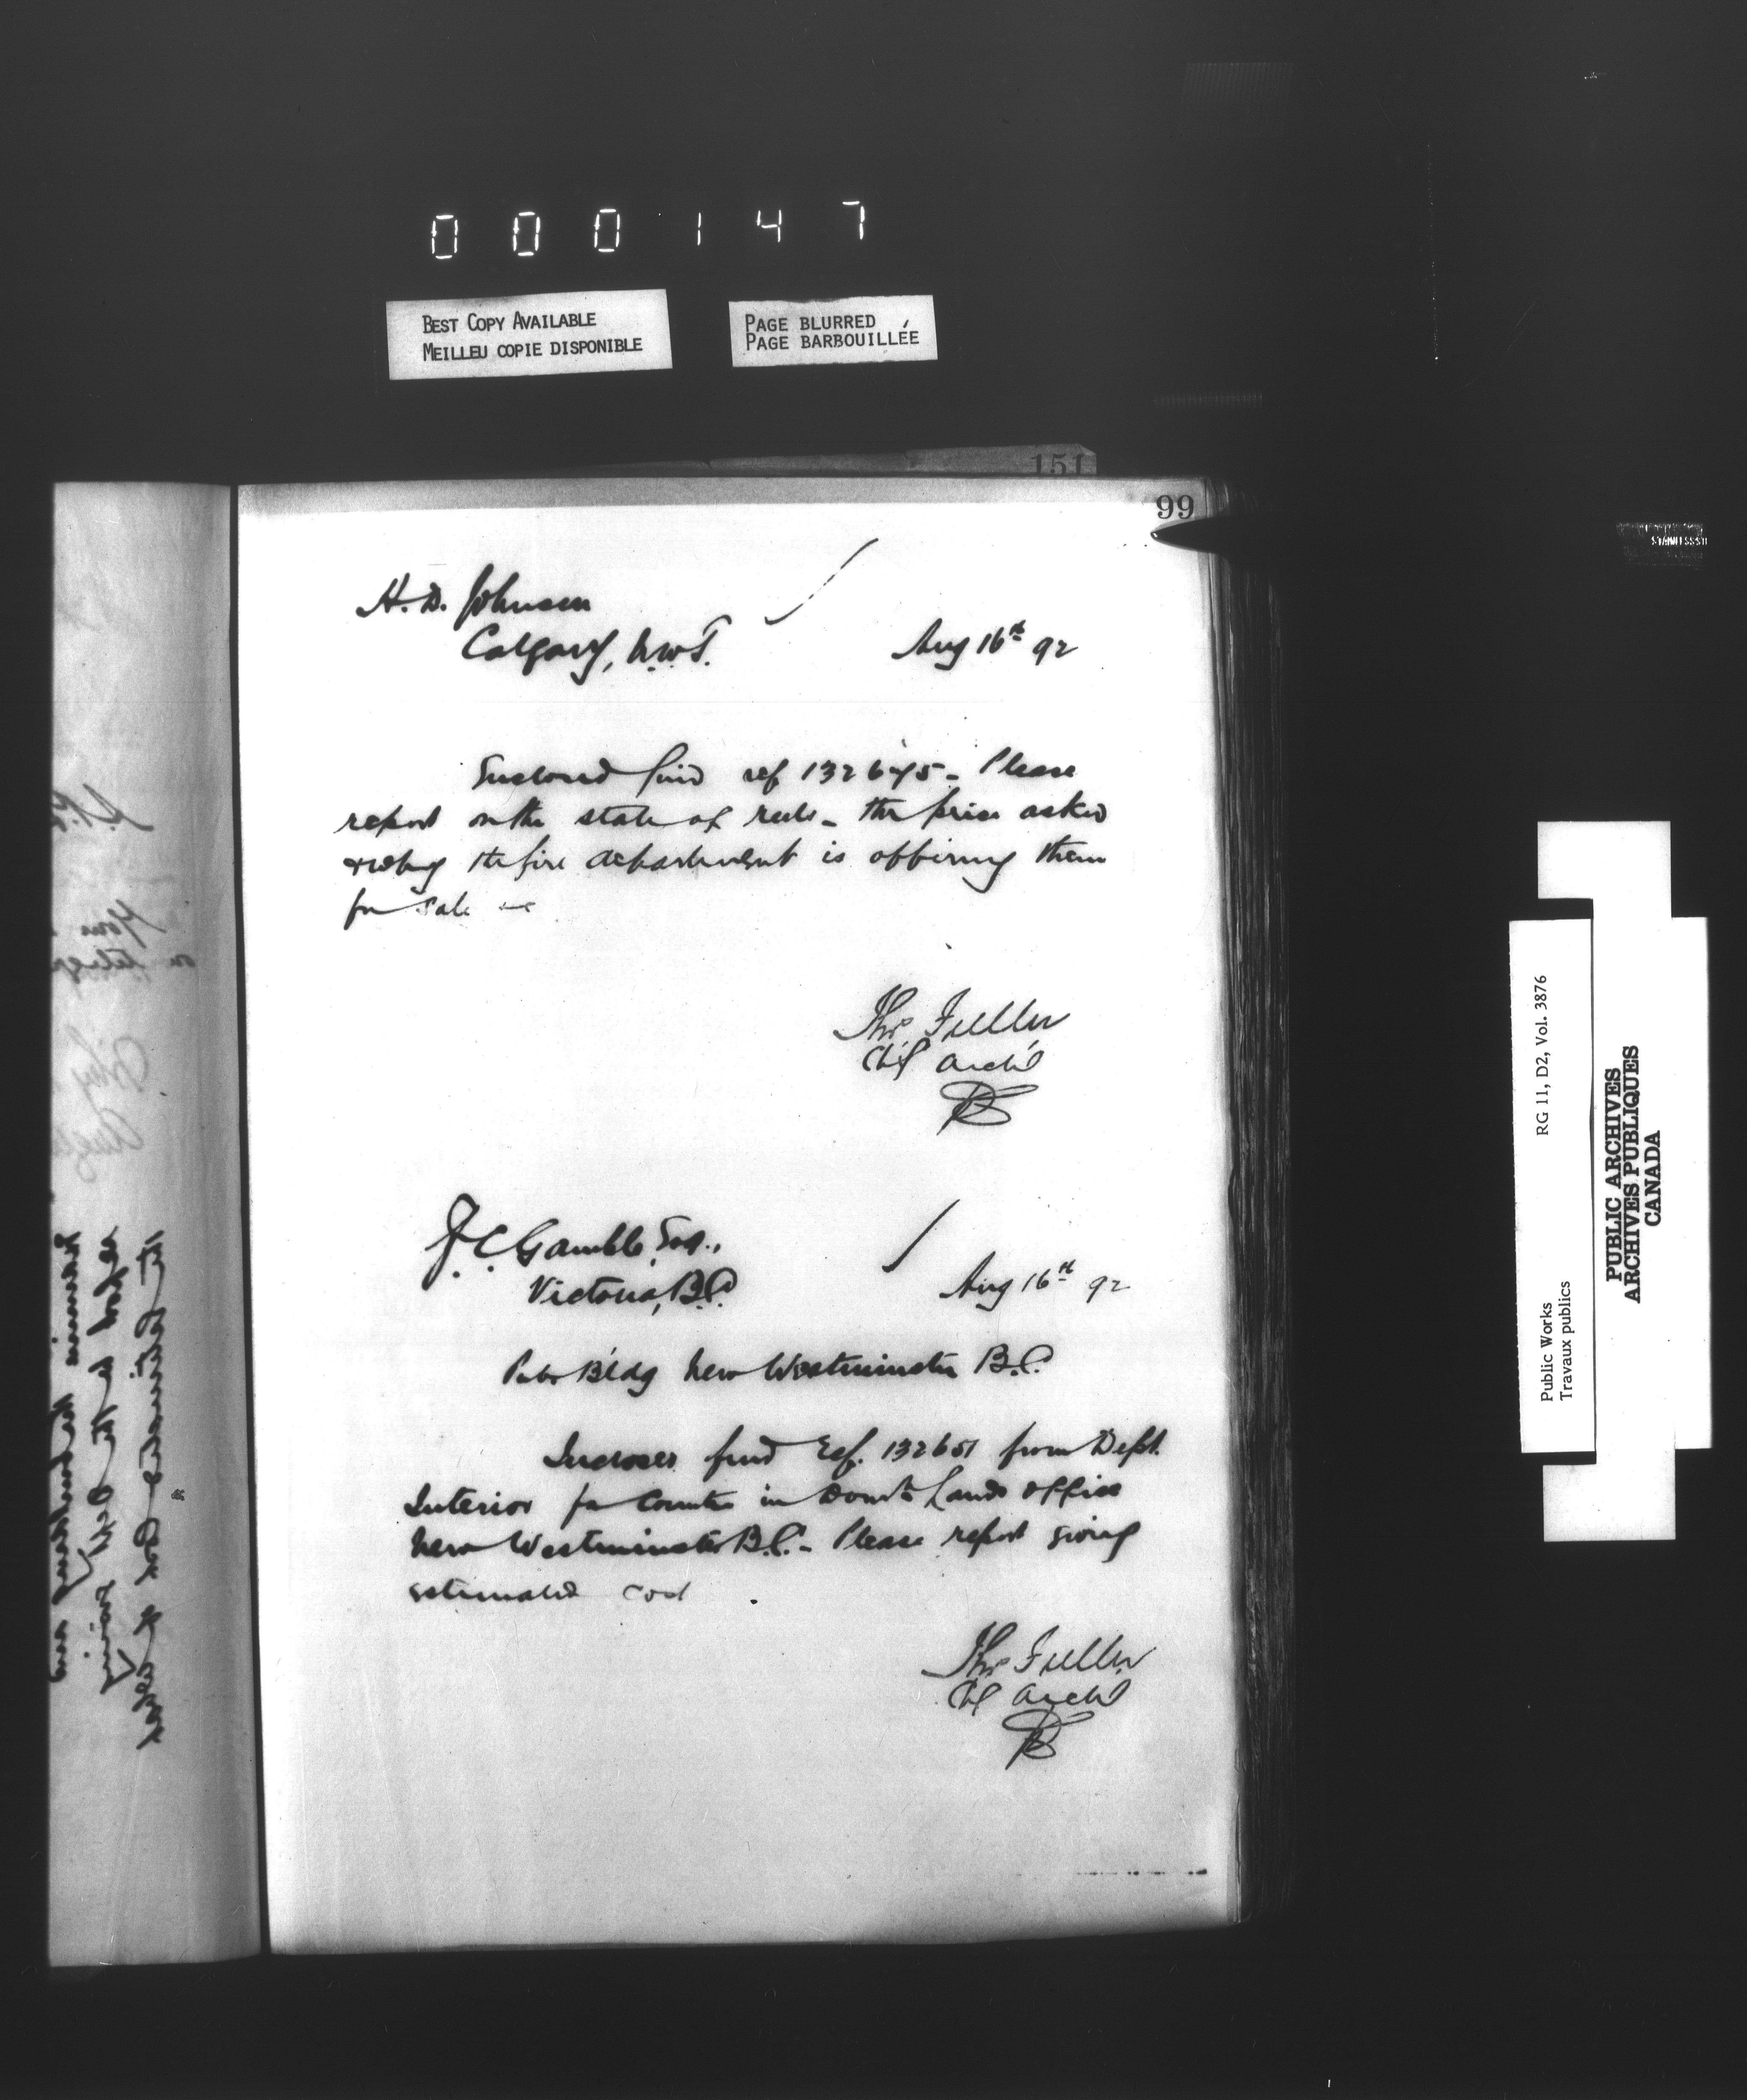 000147
BEST COPY AVAILABLE
MEILLEU COPIE DISPONIBLE
PAGE BLURRED
PAGE BARBOUILLÉE
151
99
H. D. Johnson
Calgary, N.W.T.
Aug 16th 92
Enclosed find ref 132675 - Please
report on the state of reels - the price asked
& why the fire department is offering them
for sale &c
Thos Fuller
Chf Archt
J. C. Gamble, Esq.,
Victoria, B.C.
Aug 16th 92
Pub Bldg New Westminster B.C.
Inclosed find Ref. 132651 from Dept.
Interior for Counter in Domn Lands Office
New Westminster B.C. - Please report giving
estimated cost
Thos Fuller
Chf Archt
RG 11, D2, Vol. 3876
Public Works
Travaux publics
PUBLIC ARCHIVES
ARCHIVES PUBLIQUES
CANADA